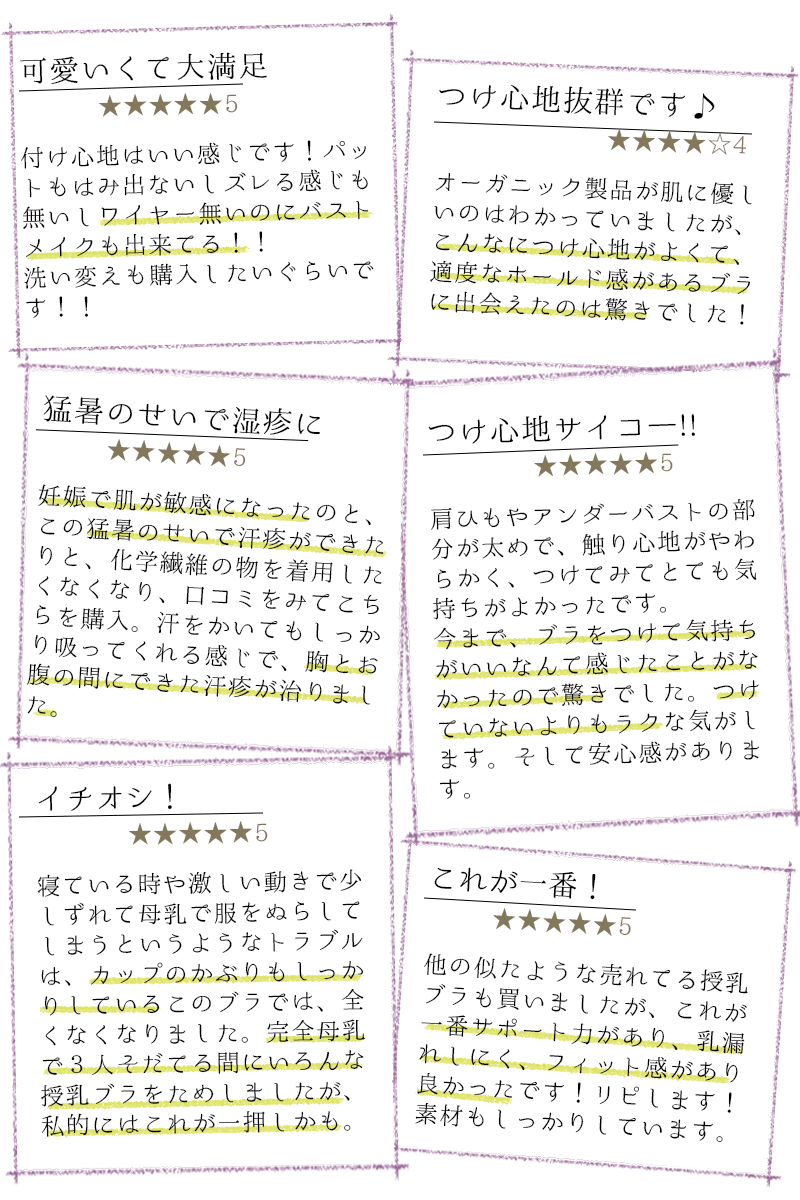 可愛いくて大満足
★★★★★5
付け心地はいい感じです！パッ
トもはみ出ないしズレる感じも
無いしワイヤー無いのにバスト
メイクも出来てる！！
洗い変えも購入したいぐらいで
す！！
つけ心地抜群です♪
★★★★☆4
オーガニック製品が肌に優し
いのはわかっていましたが、
こんなにつけ心地がよくて、
適度なホールド感があるブラ
に出会えたのは驚きでした！
猛暑のせいで湿疹に
★★★★★5
妊娠で肌が敏感になったのと、
この猛暑のせいで汗疹ができた
りと、化学繊維の物を着用した
くなくなり、口コミをみてこち
らを購入。汗をかいてもしっか
り吸ってくれる感じで、胸とお
腹の間にできた汗疹が治りまし
た。
つけ心地サイコー!!
★★★★★5
肩ひもやアンダーバストの部
分が太めで、触り心地がやわ
らかく、つけてみてとても気
持ちがよかったです。
今まで、ブラをつけて気持ち
がいいなんて感じたことがな
かったので驚きでした。つけ
ていないよりもラクな気がし
ます。そして安心感がありま
す。
イチオシ！
★★★★★5
寝ている時や激しい動きで少
しずれて母乳で服をぬらして
しまうというようなトラブル
は、カップのかぶりもしっか
りしているこのブラでは、全
くなくなりました。完全母乳
で３人そだてる間にいろんな
授乳ブラをためしましたが、
私的にはこれが一押しかも。
これが一番！
★★★★★5
他の似たような売れてる授乳
ブラも買いましたが、これが
一番サポート力があり、乳漏
れしにく、フィット感があり
良かったです！リピします！
素材もしっかりしています。